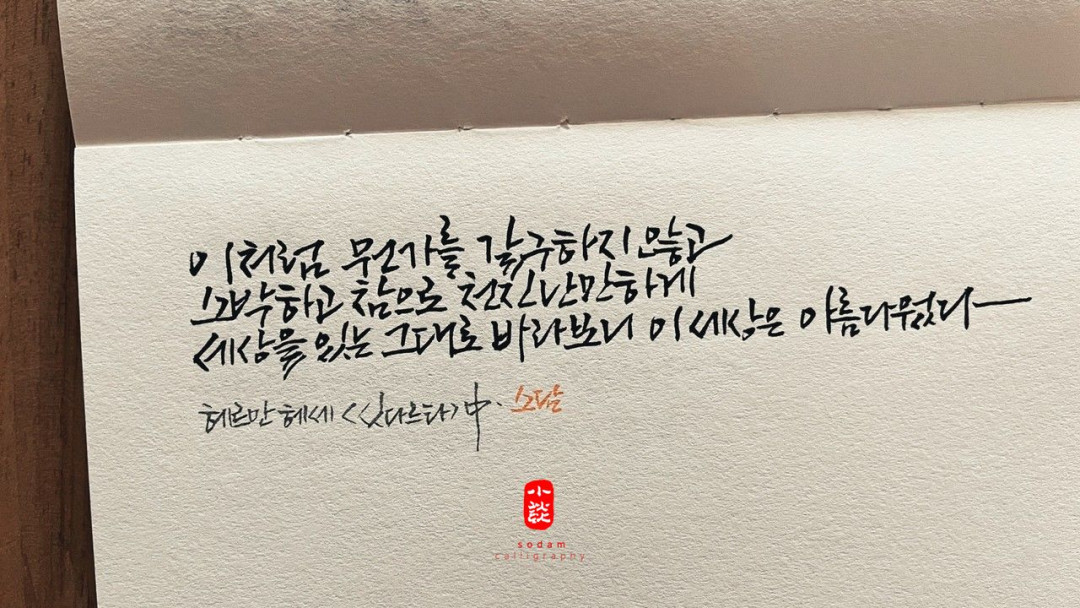 이처럼 뭔가를 갈구하지 않고
소박하고 참으로 천진난만하게
세상을 있는 그대로 바라보니 이 세상은 아름다웠다
헤르만 헤세 <싯다르타> 中. 소담
小談
sodam
calligraphy